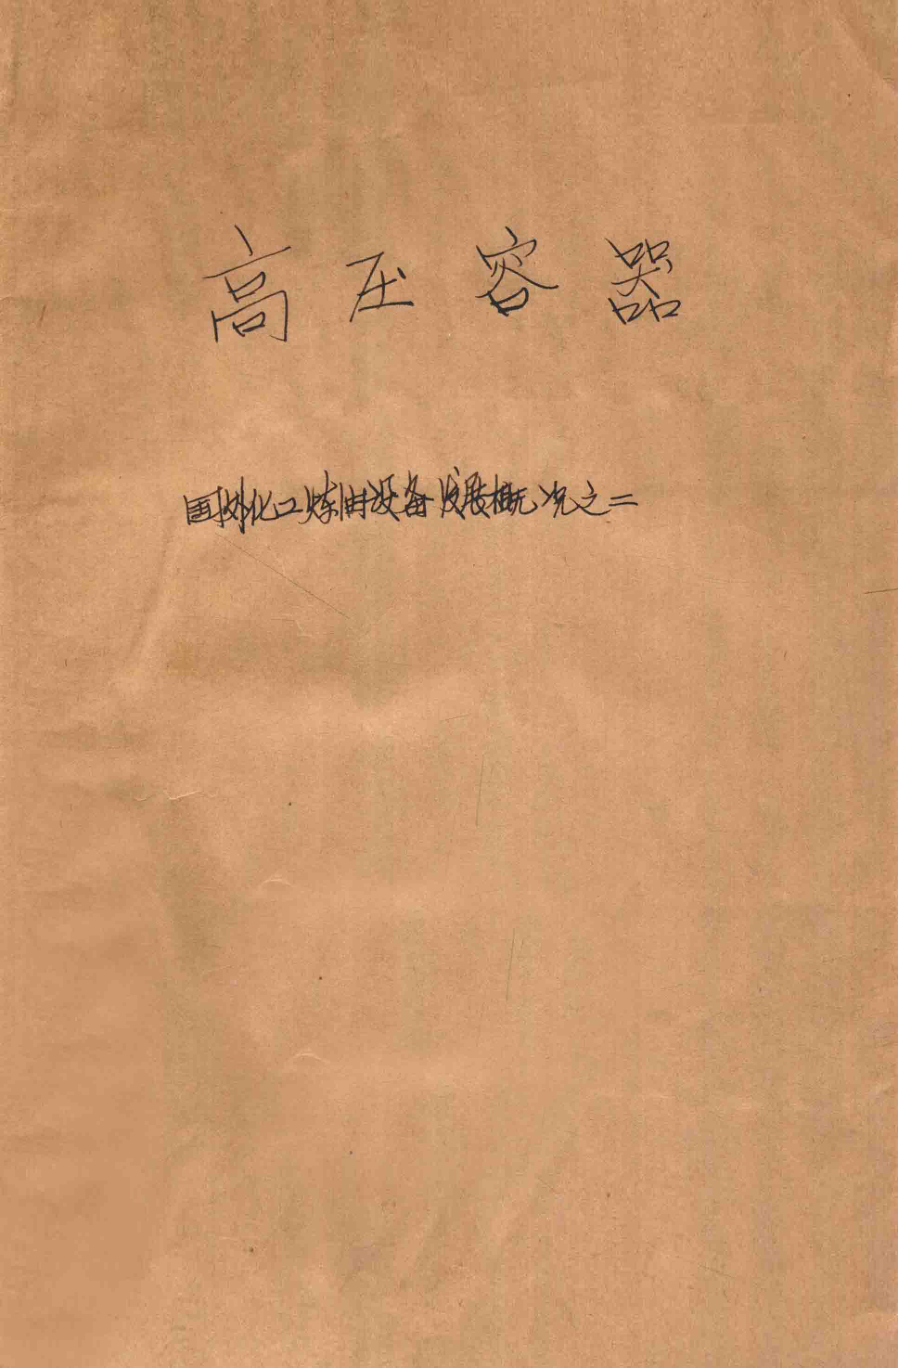 高压容器
国外化工炼油设备发展概况之二